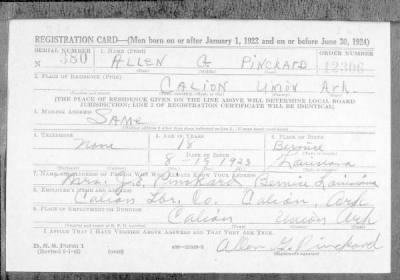 REGISTRATION CARD—(Men born on or after January 1, 1922 and on or before June 30, 1924)
SERIAL NUMBER 1. NAME (Print) ORDER NUMBER
N 380 ALLEN G PINCKARD 12306
(First) (Middle) (Last)
2. PLACE OF RESIDENCE (Print)
CALION UNION Ark.
[THE PLACE OF RESIDENCE GIVEN ON THE LINE ABOVE WILL DETERMINE LOCAL BOARD
JURISDICTION; LINE 2 OF REGISTRATION CERTIFICATE WILL BE IDENTICAL]
3. MAILING ADDRESS
SAME
4. TELEPHONE 5. AGE IN YEARS 6. PLACE OF BIRTH
None 18 Bernice
8-19 1923 Louisiana
7. NAME AND ADDRESS OF PERSON WHO WILL ALWAYS KNOW YOUR ADDRESS
Mrs. Pinckard Bernice Louisiana
8. EMPLOYER'S NAME AND ADDRESS
Calion Lbr. Co. Calion, Ark
9. PLACE OF EMPLOYMENT OR BUSINESS
Calion Union Ark
I AFFIRM THAT I HAVE VERIFIED ABOVE ANSWERS AND THAT THEY ARE TRUE.
D. S. S. Form 1
(over) Allen G. Pinckard